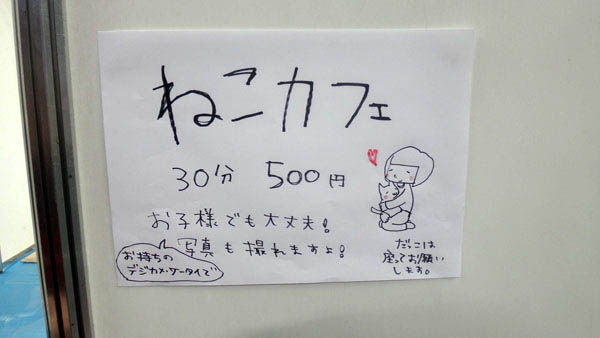 ねこカフェ
30分 500円
お子様でも大丈夫!
写真も撮れますよ!
お持ちの
デジカメ・ケータイで
だっこは
座ってお願い
します。